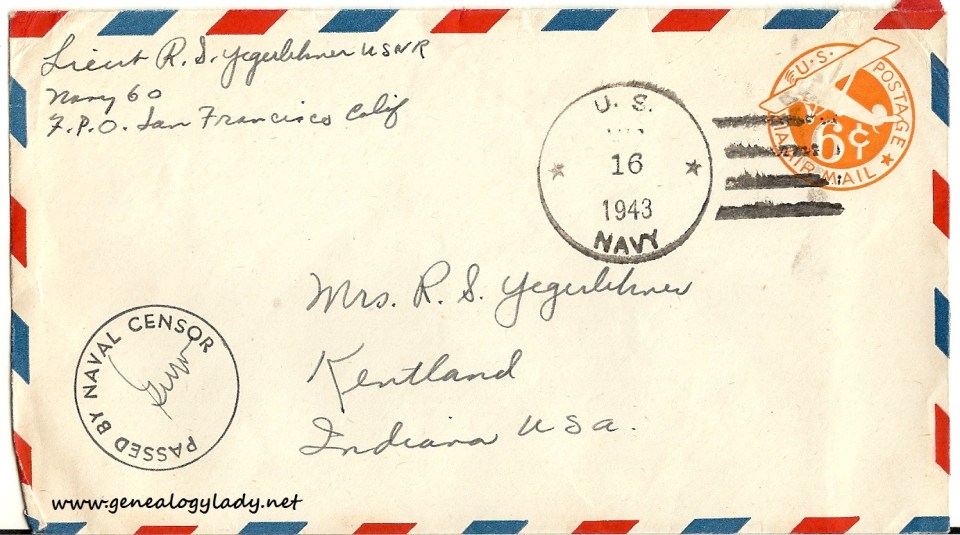 Lieut R. S. Yegerlehner USNR
Navy 60
F.P.O. San Francisco Calif
U. S.
16
1943
NAVY
U.S. POSTAGE
6¢
VIA AIR MAIL
Mrs. R. S. Yegerlehner
Kentland
Indiana USA.
PASSED BY NAVAL CENSOR
www.genealogylady.net